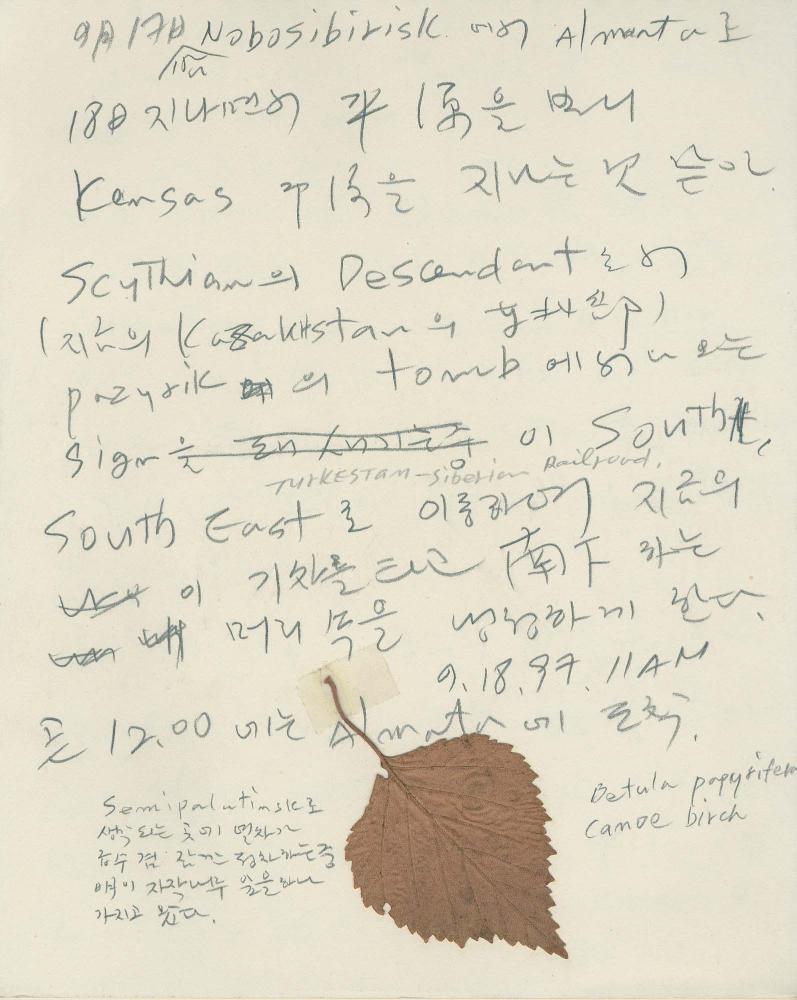 9月 17日 Nobosibirisk 에서 Almanta로
18日 지나면서 平原을 보니
Kensas 平原을 지나는 것 같다.
Scythian의 Descendant로서
(지금의 Kazakhstan의
pazyrik의 tomb에서 나오는
sign을 이 South,
TURKESTAM-Siberian Railroad.
South East로 이동하여 지금의
이 기차를 타고 南下 하는
머리 속을 냉정하게 한다.
9.18.97. 11AM
곧 12.00 에는 Almata에 도착.
Semipalatinsk로
생각되는 곳에 열차가
급수 겸 잠깐 정차하는 중
밖의 자작나무 잎을 하나
가지고 왔다.
Betula papyrifera
Canoe birch